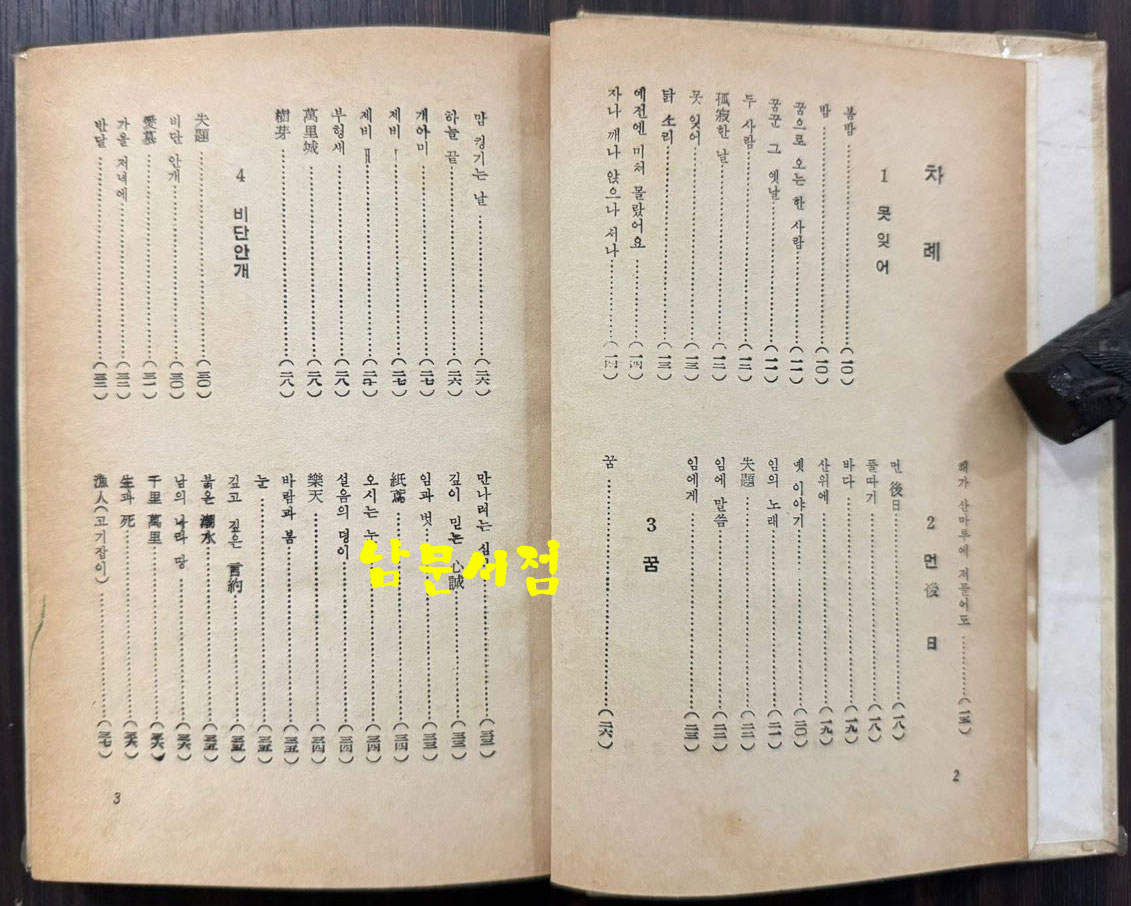 차 례
1 못잊어
봄밤……(一〇)
밤……(一〇)
꿈으로 오는 한 사람……(一一)
꿈꾼 그 옛날……(一一)
두 사람……(一二)
孤寂한 날……(一二)
못 잊어……(一三)
닭 소리……(一三)
예전엔 미처 몰랐어요……(一四)
자나 깨나 앉으나 서나……(一四)
해가 산마루에 저물어도……(一五)
2 먼 後 日
먼 後日……(一八)
풀따기……(一八)
바다……(一九)
산위에……(一九)
옛 이야기……(二〇)
임의 노래……(二一)
失題……(二二)
임에 말씀……(二二)
임에게……(二三)
3 꿈
꿈……(二六)
2
맘 켱기는 날……(二六)
하늘 끝……(二六)
개아미……(二七)
제비……(二七)
제비 Ⅱ……(二七)
부헝새……(二八)
萬里城……(二八)
樹芽……(二八)
4 비단안개
失題……(三〇)
비단 안개……(三〇)
愛慕……(三一)
가을 저녁에……(三二)
반달……(三二)
만나려는……(三二)
깊이 믿는 心誠……(三三)
임과 벗……(三三)
紙鳶……(三四)
오시는……(三四)
설음의 덩이……(三四)
樂天……(三四)
바람과 봄……(三五)
눈……(三五)
깊고 깊은 言約……(三五)
붉은 潮水……(三五)
남의 나라 땅……(三六)
千里萬里……(三六)
生과 死……(三六)
漁人(고기잡이)……(三七)
3
남문서점